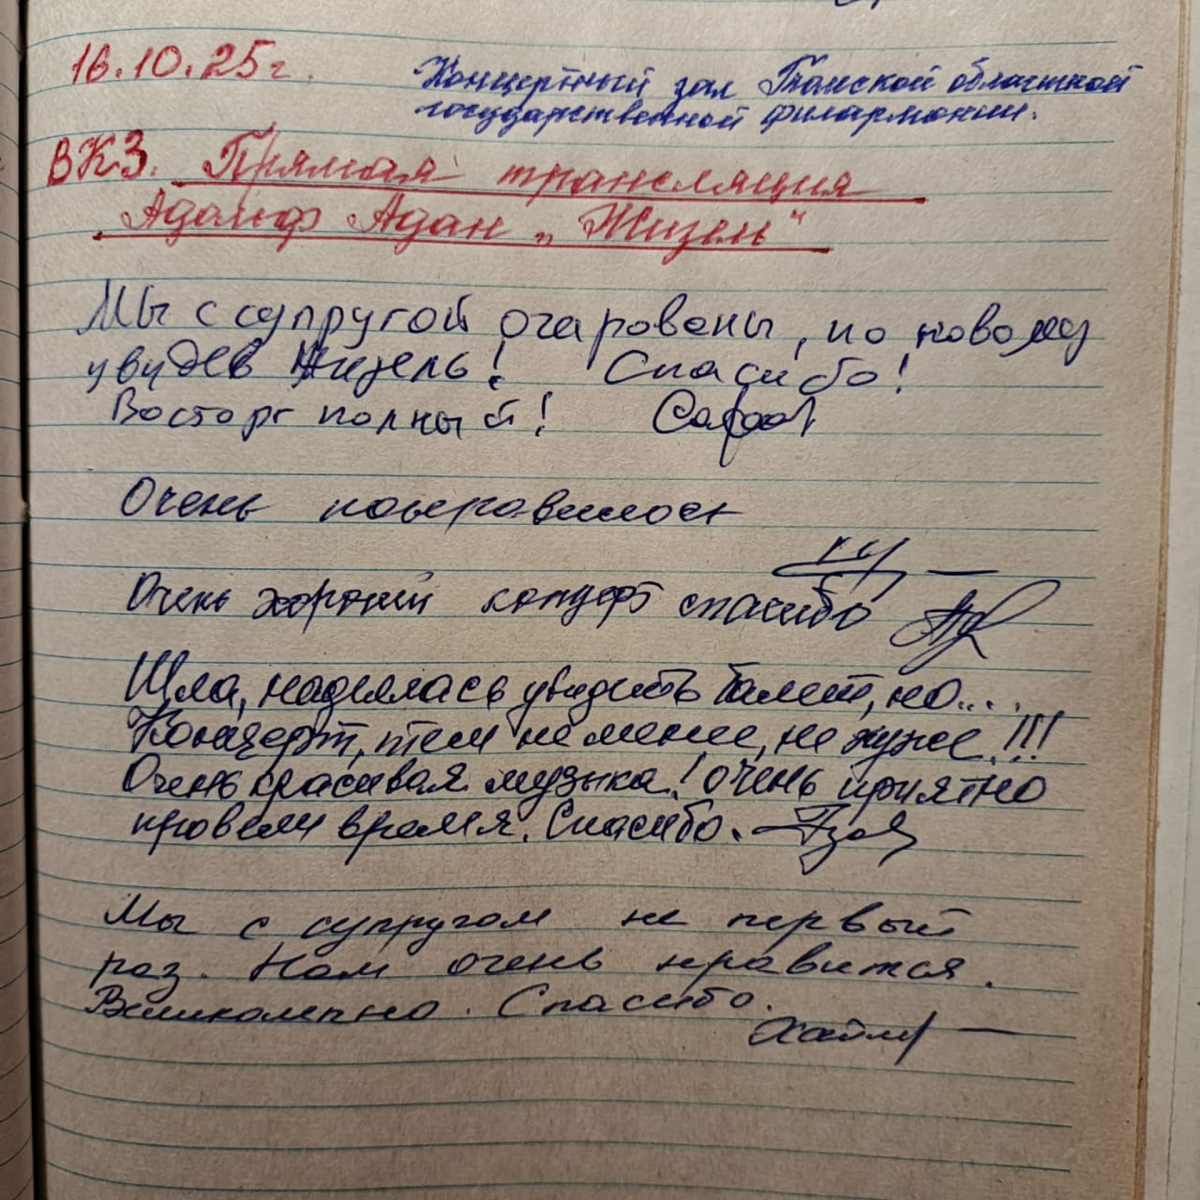 16.10.25г.
Концертный зал Томской областной
государственной филармонии.
ВКЗ. Прямая трансляция
Адольф Адан „Жизель“
Мы с супругой очарованы, по новому
увидев Жизель! Спасибо!
Восторг полный!
Очень понравилось
Очень хороший концерт спасибо
Шла, надеялась увидить балет, но....
Концерт, тем не менее, не хуже!!!
Очень красивая музыка! Очень приятно
провели время. Спасибо.
Мы с супругом не первый
раз. Нам очень нравится.
Великолепно. Спасибо.